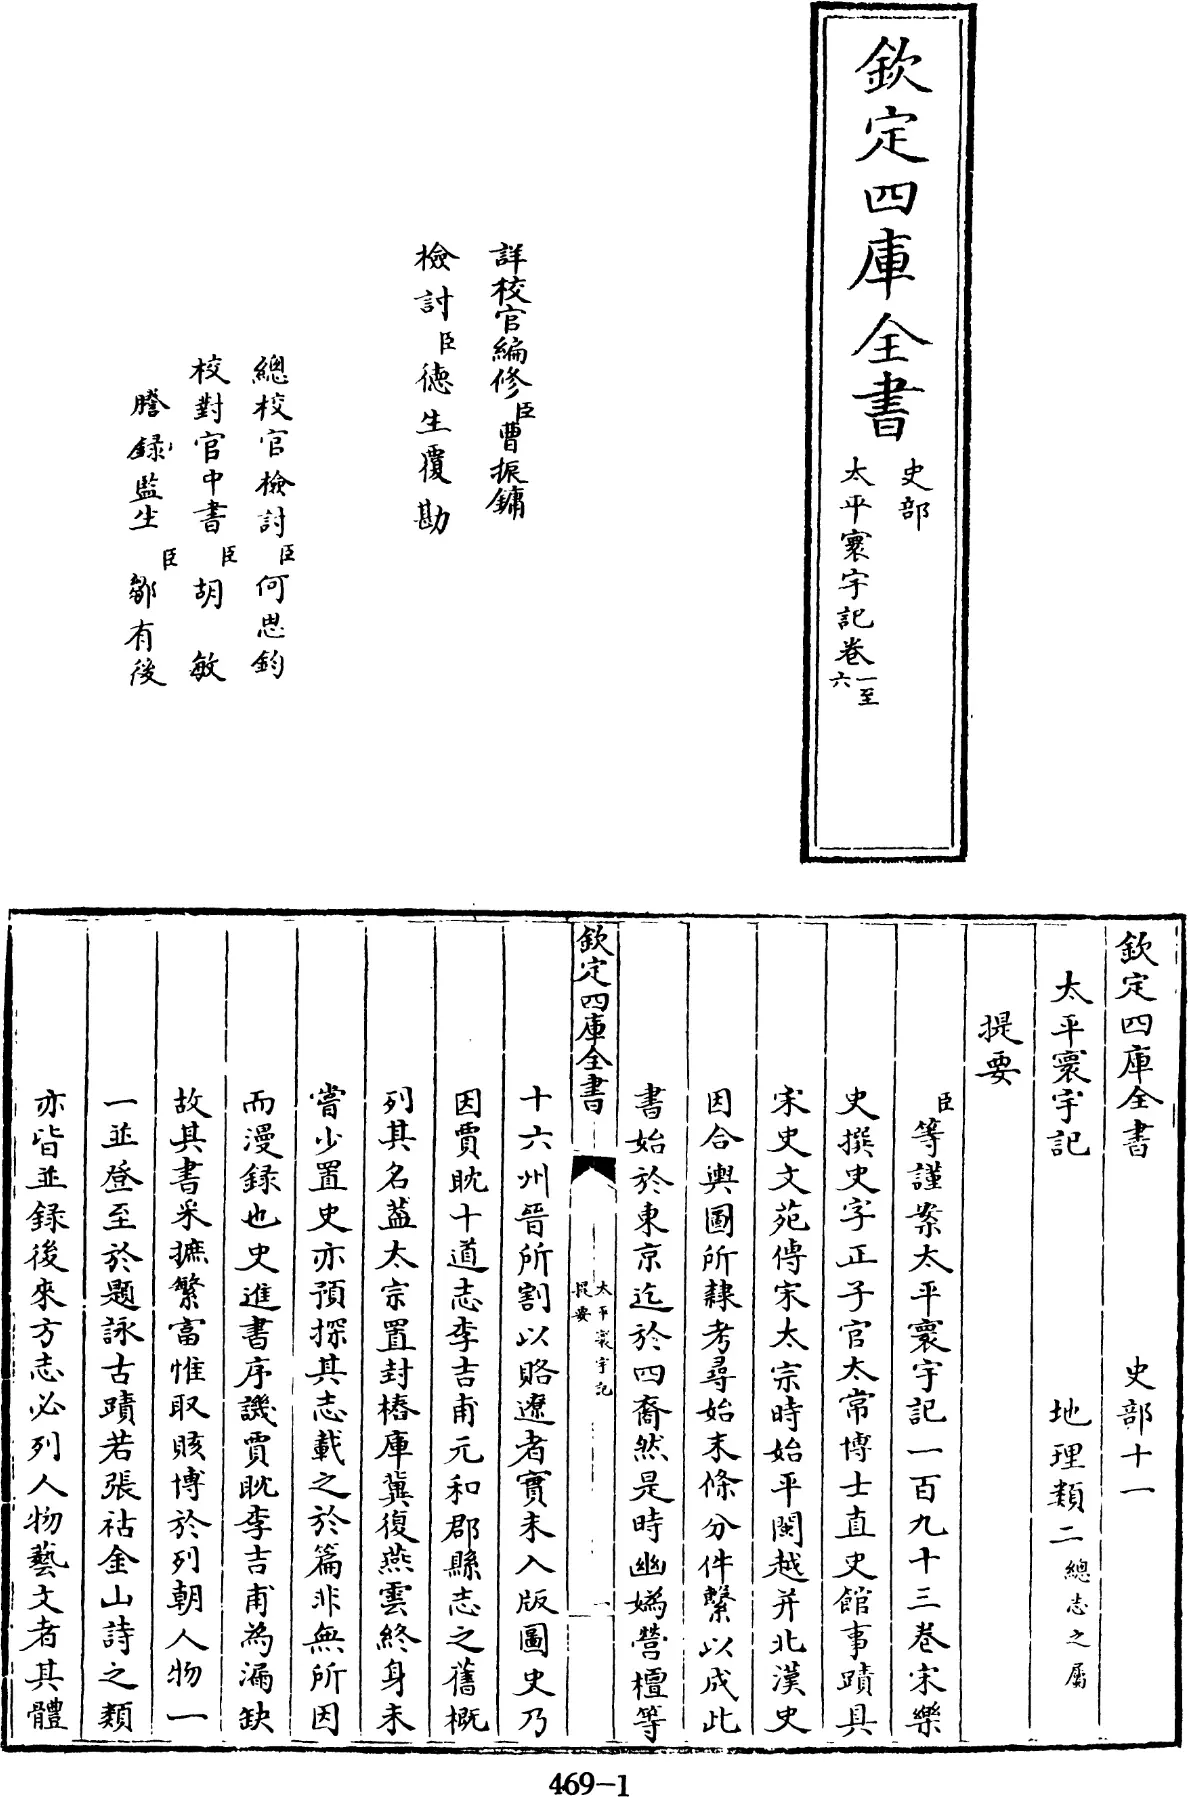 欽定四庫全書
史部
太平寰宇記卷一至六
詳校官編修臣曹振鏞
檢討臣德生覆勘
總校官檢討臣何思鈞
校對官中書臣胡敏
謄錄監生臣鄒有後
欽定四庫全書 史部十一
太平寰宇記 地理類二總志之屬
提要
臣等謹案太平寰宇記一百九十三卷宋樂
史撰史字正子官太常博士直史館事蹟具
宋史文苑傳宋太宗時始平閩越并北漢史
因合輿圖所隸考尋始末條分件繫以成此
書始於東京迄於四裔然是時幽媯營檀等
欽定四庫全書
太平寰宇記
提要
一
十六州晉所割以賂遼者實未入版圖史乃
因賈耽十道志李吉甫元和郡縣志之舊概
列其名蓋太宗置封樁庫冀復燕雲終身未
嘗少置史亦預探其志載之於篇非無所因
而漫録也史進書序譏賈耽李吉甫為漏缺
故其書采摭繁富惟取賅博於列朝人物一
一並登至於題詠古蹟若張祜金山詩之類
亦皆並録後來方志必列人物藝文者其體
469-1